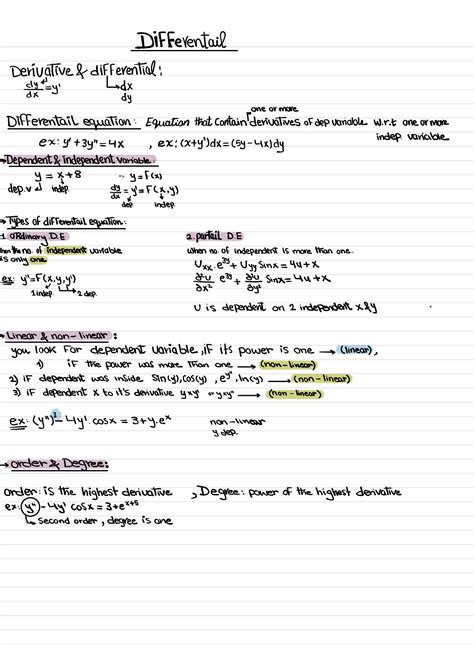 Differentail
Derivative & differential:
dy/dx = y' → dx
dy
Differentail equation: Equation that contain one or more derivatives of dep variable w.r.t one or more
indep variable
ex: y' + 3y" = 4x , ex: (x+y')dx = (5y-4x)dy
→ Dependent & independent variable.
y = x+8 ∴ y = F(x)
dep.v indep dy/dx = y' = F(x,y)
dep indep
→ Types of differentail equation:
1. ordinary D.E
when the no. of independent variable
is only one
ex: y" = F(x,y,y')
1 indep 2 dep.
2. partail D.E
when no. of independent is more than one.
Uxx.e^3y + Uyy Sinx = 4u + x
∂²u/∂x² e^3y + ∂²u/∂y² Sinx = 4u + x
U is dependent on 2 independent x & y
→ Linear & non-linear:
you look for dependent variable, if its power is one → (linear),
1) if the power was more than one → (non-linear)
2) if dependent was inside sin(y), cos(y), e^y, ln(y) → (non-linear)
3) if dependent x to it's derivative → (non-linear)
ex: (y")² - 4y'.cosx = 3 + y.e^x non-linear
y dep.
→ order & Degree:
order: is the highest derivative , Degree: power of the highest derivative
ex: y" - 4y' cosx = 3 + e^x+5
↳ second order, degree is one